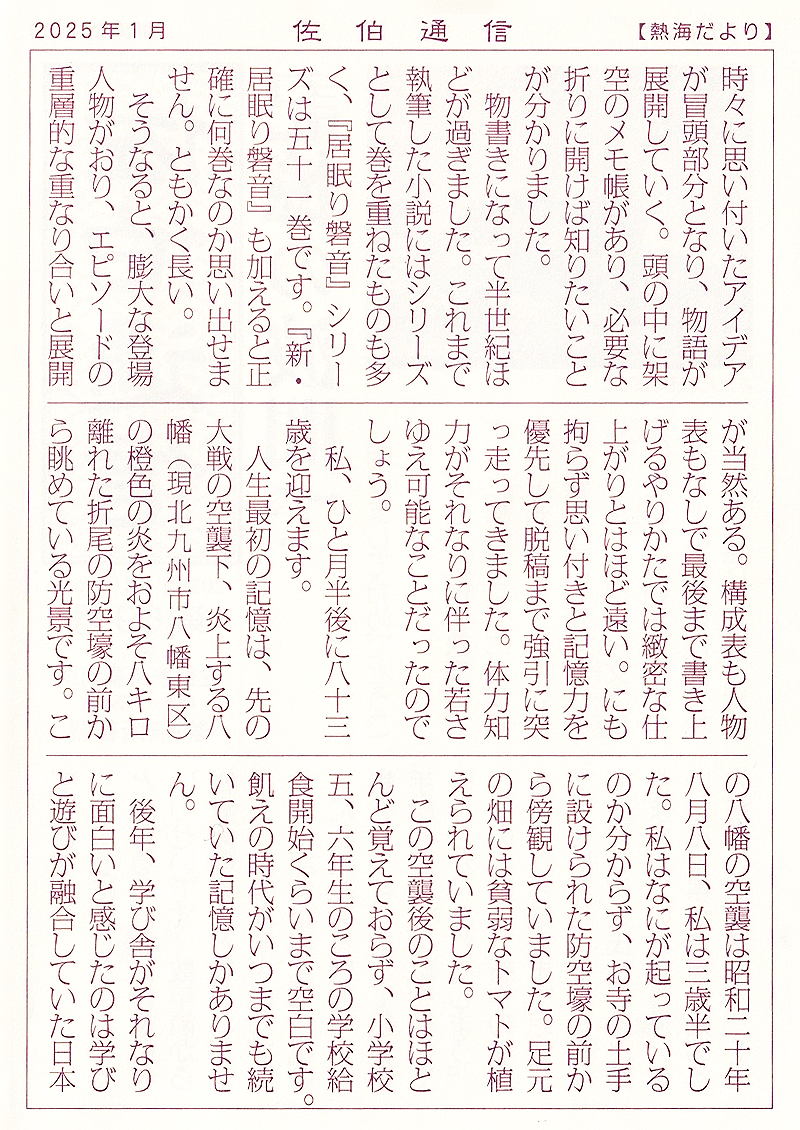 2025年1月
佐伯通信
【熱海だより】
時々に思い付いたアイデア
が冒頭部分となり、物語が
展開していく。頭の中に架
空のメモ帳があり、必要な
折りに開けば知りたいこと
が分かりました。
物書きになって半世紀ほ
どが過ぎました。これまで
執筆した小説にはシリーズ
として巻を重ねたものも多
く、『居眠り磐音』シリー
ズは五十一巻です。『新・
居眠り磐音』も加えると正
確に何巻なのか思い出せま
せん。ともかく長い。
そうなると、膨大な登場
人物がおり、エピソードの
重層的な重なり合いと展開
が当然ある。構成表も人物
表もなしで最後まで書き上
げるやりかたでは緻密な仕
上がりとはほど遠い。にも
拘らず思い付きと記憶力を
優先して脱稿まで強引に突
っ走ってきました。体力知
力がそれなりに伴った若さ
ゆえ可能なことだったので
しょう。
私、ひと月半後に八十三
歳を迎えます。
人生最初の記憶は、先の
大戦の空襲下、炎上する八
幡（現北九州市八幡東区）
の橙色の炎をおよそ八キロ
離れた折尾の防空壕の前か
ら眺めている光景です。こ
の八幡の空襲は昭和二十年
八月八日、私は三歳半でし
た。私はなにが起っている
のか分からず、お寺の土手
に設けられた防空壕の前か
ら傍観していました。足元
の畑には貧弱なトマトが植
えられていました。
この空襲後のことはほと
んど覚えておらず、小学校
五、六年生のころの学校給
食開始くらいまで空白です。
飢えの時代がいつまでも続
いていた記憶しかありませ
ん。
後年、学び舎がそれなり
に面白いと感じたのは学び
と遊びが融合していた日本